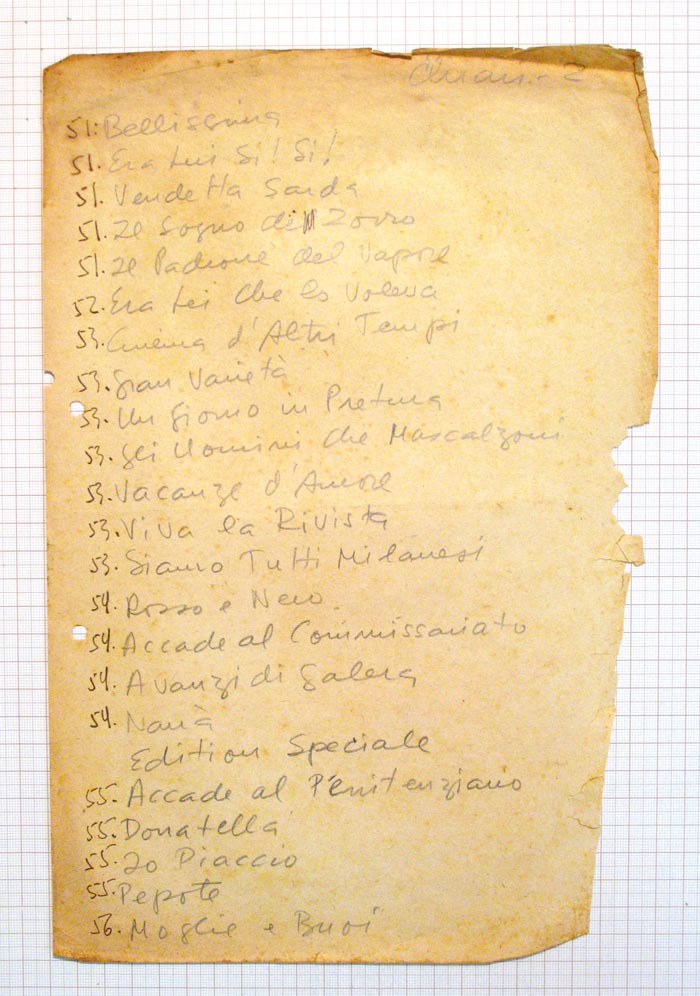 Chiari - 2
51: Bellissima
51. Era Lui Si! Si!
51. Vendetta Sarda
51. Il Sogno di Zorro
51. Il Padrone del Vapore
52. Era Lei che lo Voleva
53. Cinema d'Altri Tempi
53. Gran Varietà
53. Un Giorno in Pretura
53. Gli Uomini che Mascalzoni
53. Vacanze d'Amore
53. Viva la Rivista
53. Siamo Tutti Milanesi
54. Rosso e Nero
54. Accade al Commissariato
54. Avanzi di Galera
54. Nanà
Edition Speciale
55. Accade al Penitenziario
55. Donatella
55. Io Piaccio
55. Pepote
56. Moglie e Buoi